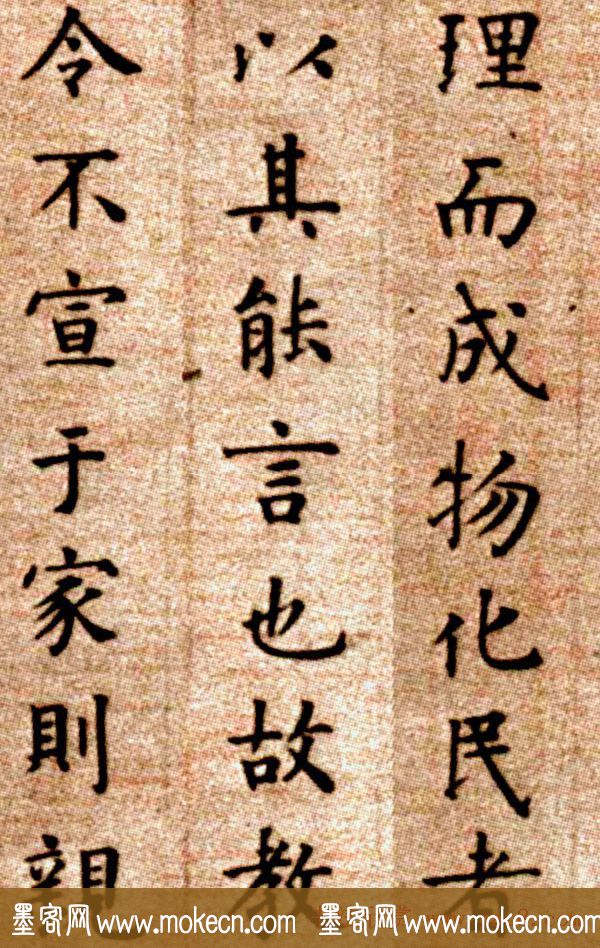 理而成物化民者
以其能言也故教
令不宣于家則親
墨客网 www.mokecn.com 墨客网 www.mokecn.com